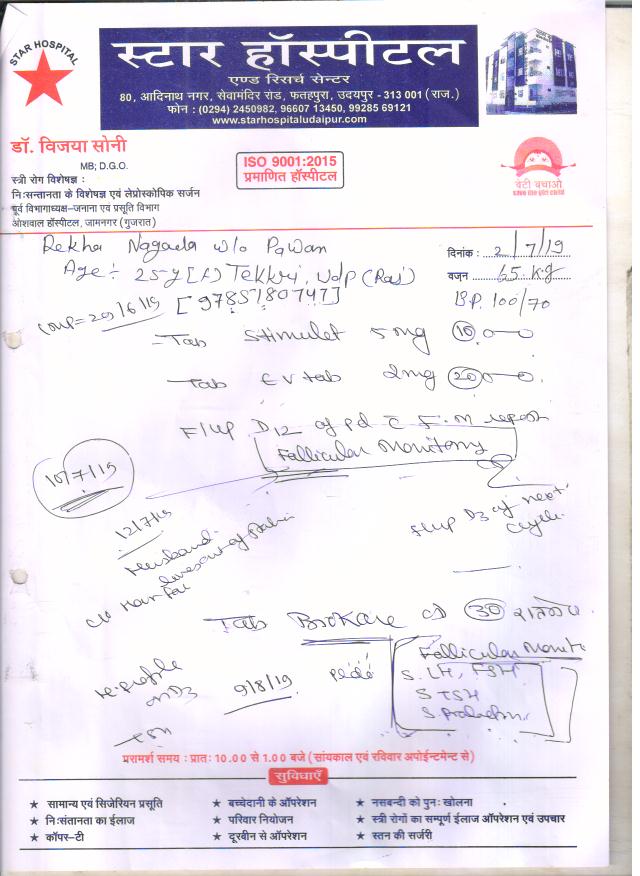 STAR HOSPITAL
स्टार हॉस्पीटल
एण्ड रिसर्च सेन्टर
80, आदिनाथ नगर, सेवामंदिर रोड, फतहपुरा, उदयपुर - 313 001 (राज.)
फोन : (0294) 2450982, 96607 13450, 99285 69121
www.starhospitaludaipur.com
डॉ. विजया सोनी
MB; D.G.O.
स्त्री रोग विशेषज्ञ :
निःसन्तानता के विशेषज्ञ एवं लेप्रोस्कोपिक सर्जन
पूर्व विभागाध्यक्ष-जनाना एवं प्रसूति विभाग
ओशवाल हॉस्पीटल, जामनगर (गुजरात)
ISO 9001:2015
प्रमाणित हॉस्पीटल
बेटी बचाओ
save the girl child
Rekha Nagada w/o Pawan
दिनांक : 2/7/19
Age :- 25 y [F] Tekkri, Udp (Raj)
वज़न 65 kg
[9785180747]
B.P. 100/70
LMP = 29/6/19
Tab Stimulet 5 mg 10
Tab EV tab 2mg 20
F/up D12 of Pd c F.M report
Follicular Monitory
10/7/19
12/7/19
Husband
lives out of
F/up D3 of next
cycle
Tab 30
Follicular Monit
S. LH, FSH
S TSH
S. Prolactin
on D3
9/8/19
TSH
परामर्श समय : प्रातः 10.00 से 1.00 बजे (सांयकाल एवं रविवार अपोईन्टमेन्ट से)
सुविधाएँ
★ सामान्य एवं सिजेरियन प्रसूति ★ बच्चेदानी के ऑपरेशन ★ नसबन्दी को पुनः खोलना
★ निःसंतानता का ईलाज ★ परिवार नियोजन ★ स्त्री रोगों का सम्पूर्ण ईलाज ऑपरेशन एवं उपचार
★ कॉपर-टी ★ दूरबीन से ऑपरेशन ★ स्तन की सर्जरी